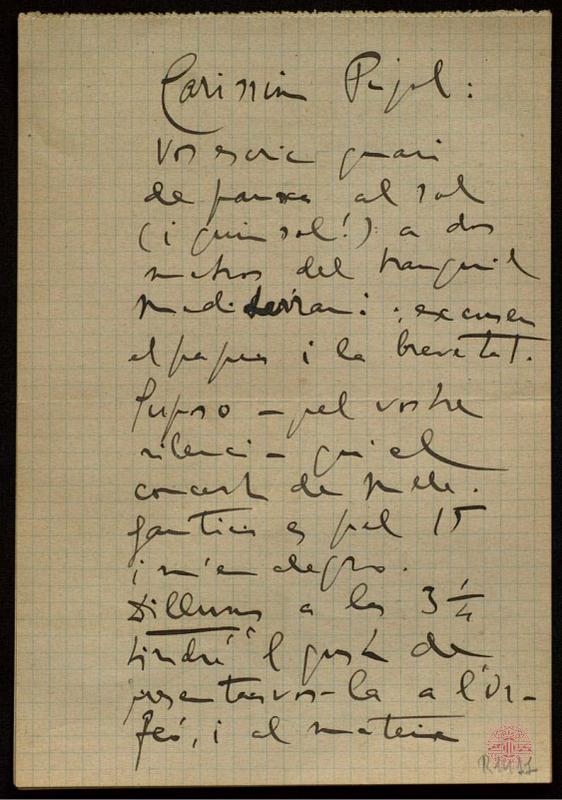 Caríssim Pujol:
Vos escric quasi
de panxa al sol
(i quin sol!) a dos
metros del tranquil
mediterrani: excuseu
el paper i la brevetat.
Suposo – pel vostre
silenci – qu'el
concert de Mele.
es pel 15
i m'en alegro.
Dilluns a les 3 1/4
tindré 'l gust de
presentarvos-la a l'Or-
feó, i al mateix